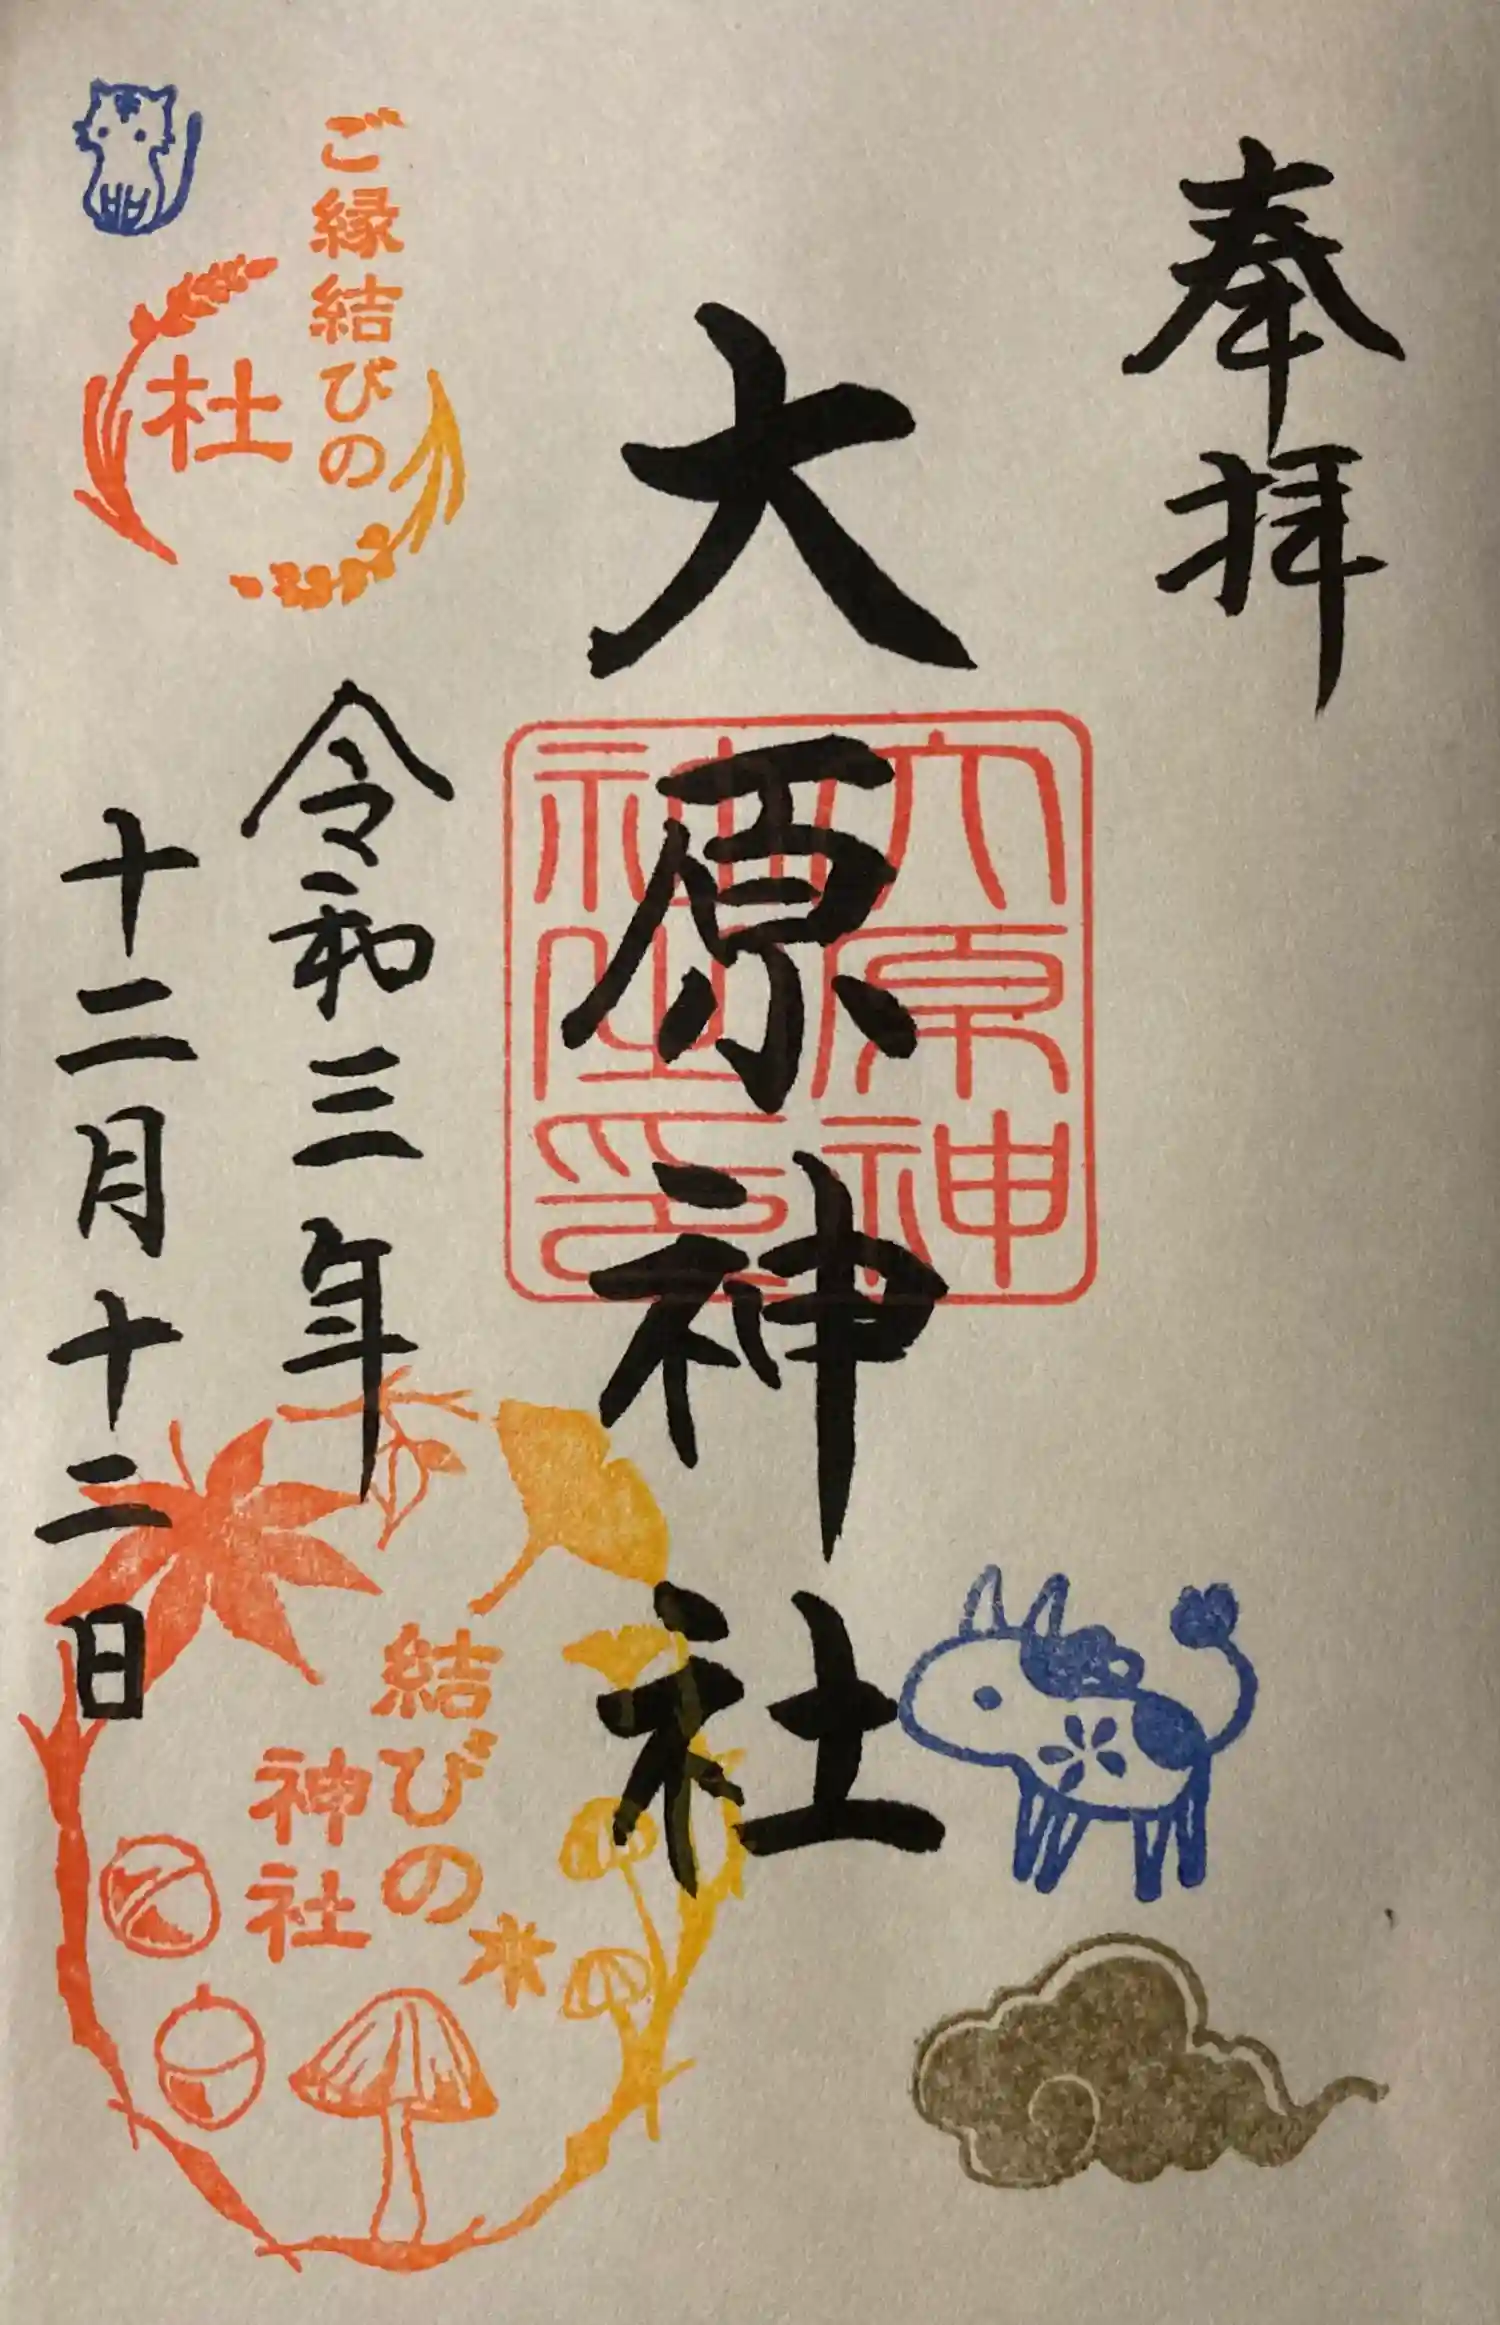 奉拝
大原神社
大原神
社社印
ご縁結びの
杜
令和三年
十二月十二日
結びの
神社